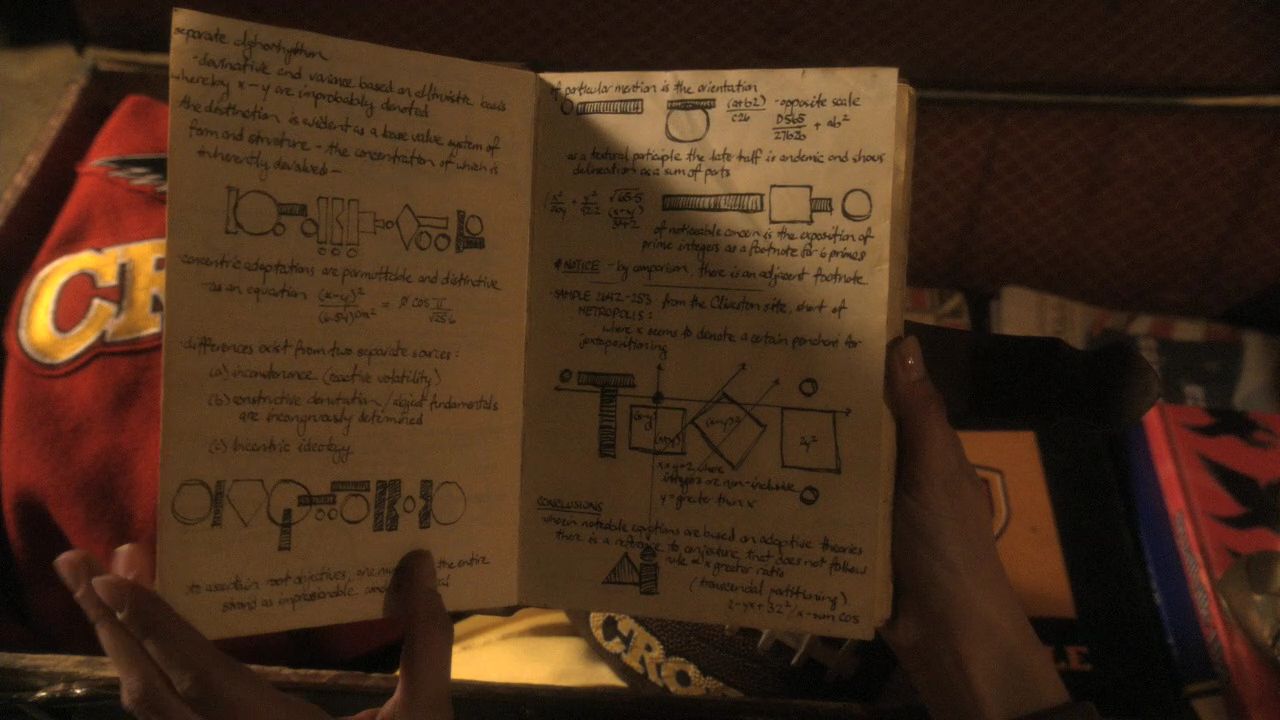 separate
-derivative and variance based on altruistic basis
whereby x - y are improbably denoted
the distinction is evident as a base value system of
form and structure - the concentration of which is
inherently devalued -
concentric adaptations are permuttable and distinctive
as an equation (x-y)² = ø cos π
differences exist from two separate sources:
(a) incontenance (reactive volatility)
(b) constructive denotation / abject fundamentals
are incongruously determined
(c) bicentric ideology
to ascertain root objectives, one the entire
strand as impressionable
of particular mention is the orientation
(a+b2) - opposite scale
c26 D565 + ab²
2762b
as a textural participle the late half is endemic and shows
delineation as a sum of parts
x² + y² √65.5
(x+y)
34+2
of noticeable concern is the exposition of
prime integers as a footnote for 6 primes
#NOTICE - by comparison, there is an adjacent footnote.
SAMPLE 2642-253 from the site, short of
METROPOLIS:
where x seems to denote a certain penchant for
juxtapositioning
(x-y)
(x+y)
(x-y)²
2y²
x+y=2, where
integers are non-inclusible
y = greater than x
CONCLUSIONS
wherin noteable equations are based on adaptive theories
there is a reference to conjecture that does not follow
rule x greater ratio
(transcendal partitioning)
2-yx+32²/x-sun cos
CR
CRO
LE